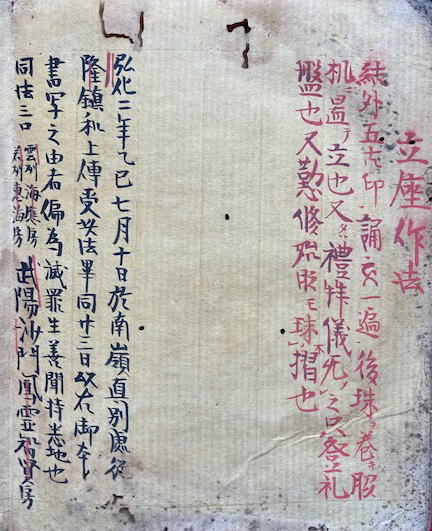 立座作法
結外五古印 誦 一遍後珠ヲ巻キ脇
机ニ置テ立也 又 禮拝儀 之只
也又懃修 珠不摺也
弘化二年乙巳七月十日於南嶺真別處從
隆鎮和上傳受此法畢同廿三日以右御本
書写之由者偏為滅罪生善聞持悉地也
同法三口 雲州海應房 海房 武陽沙門 霊智賢房